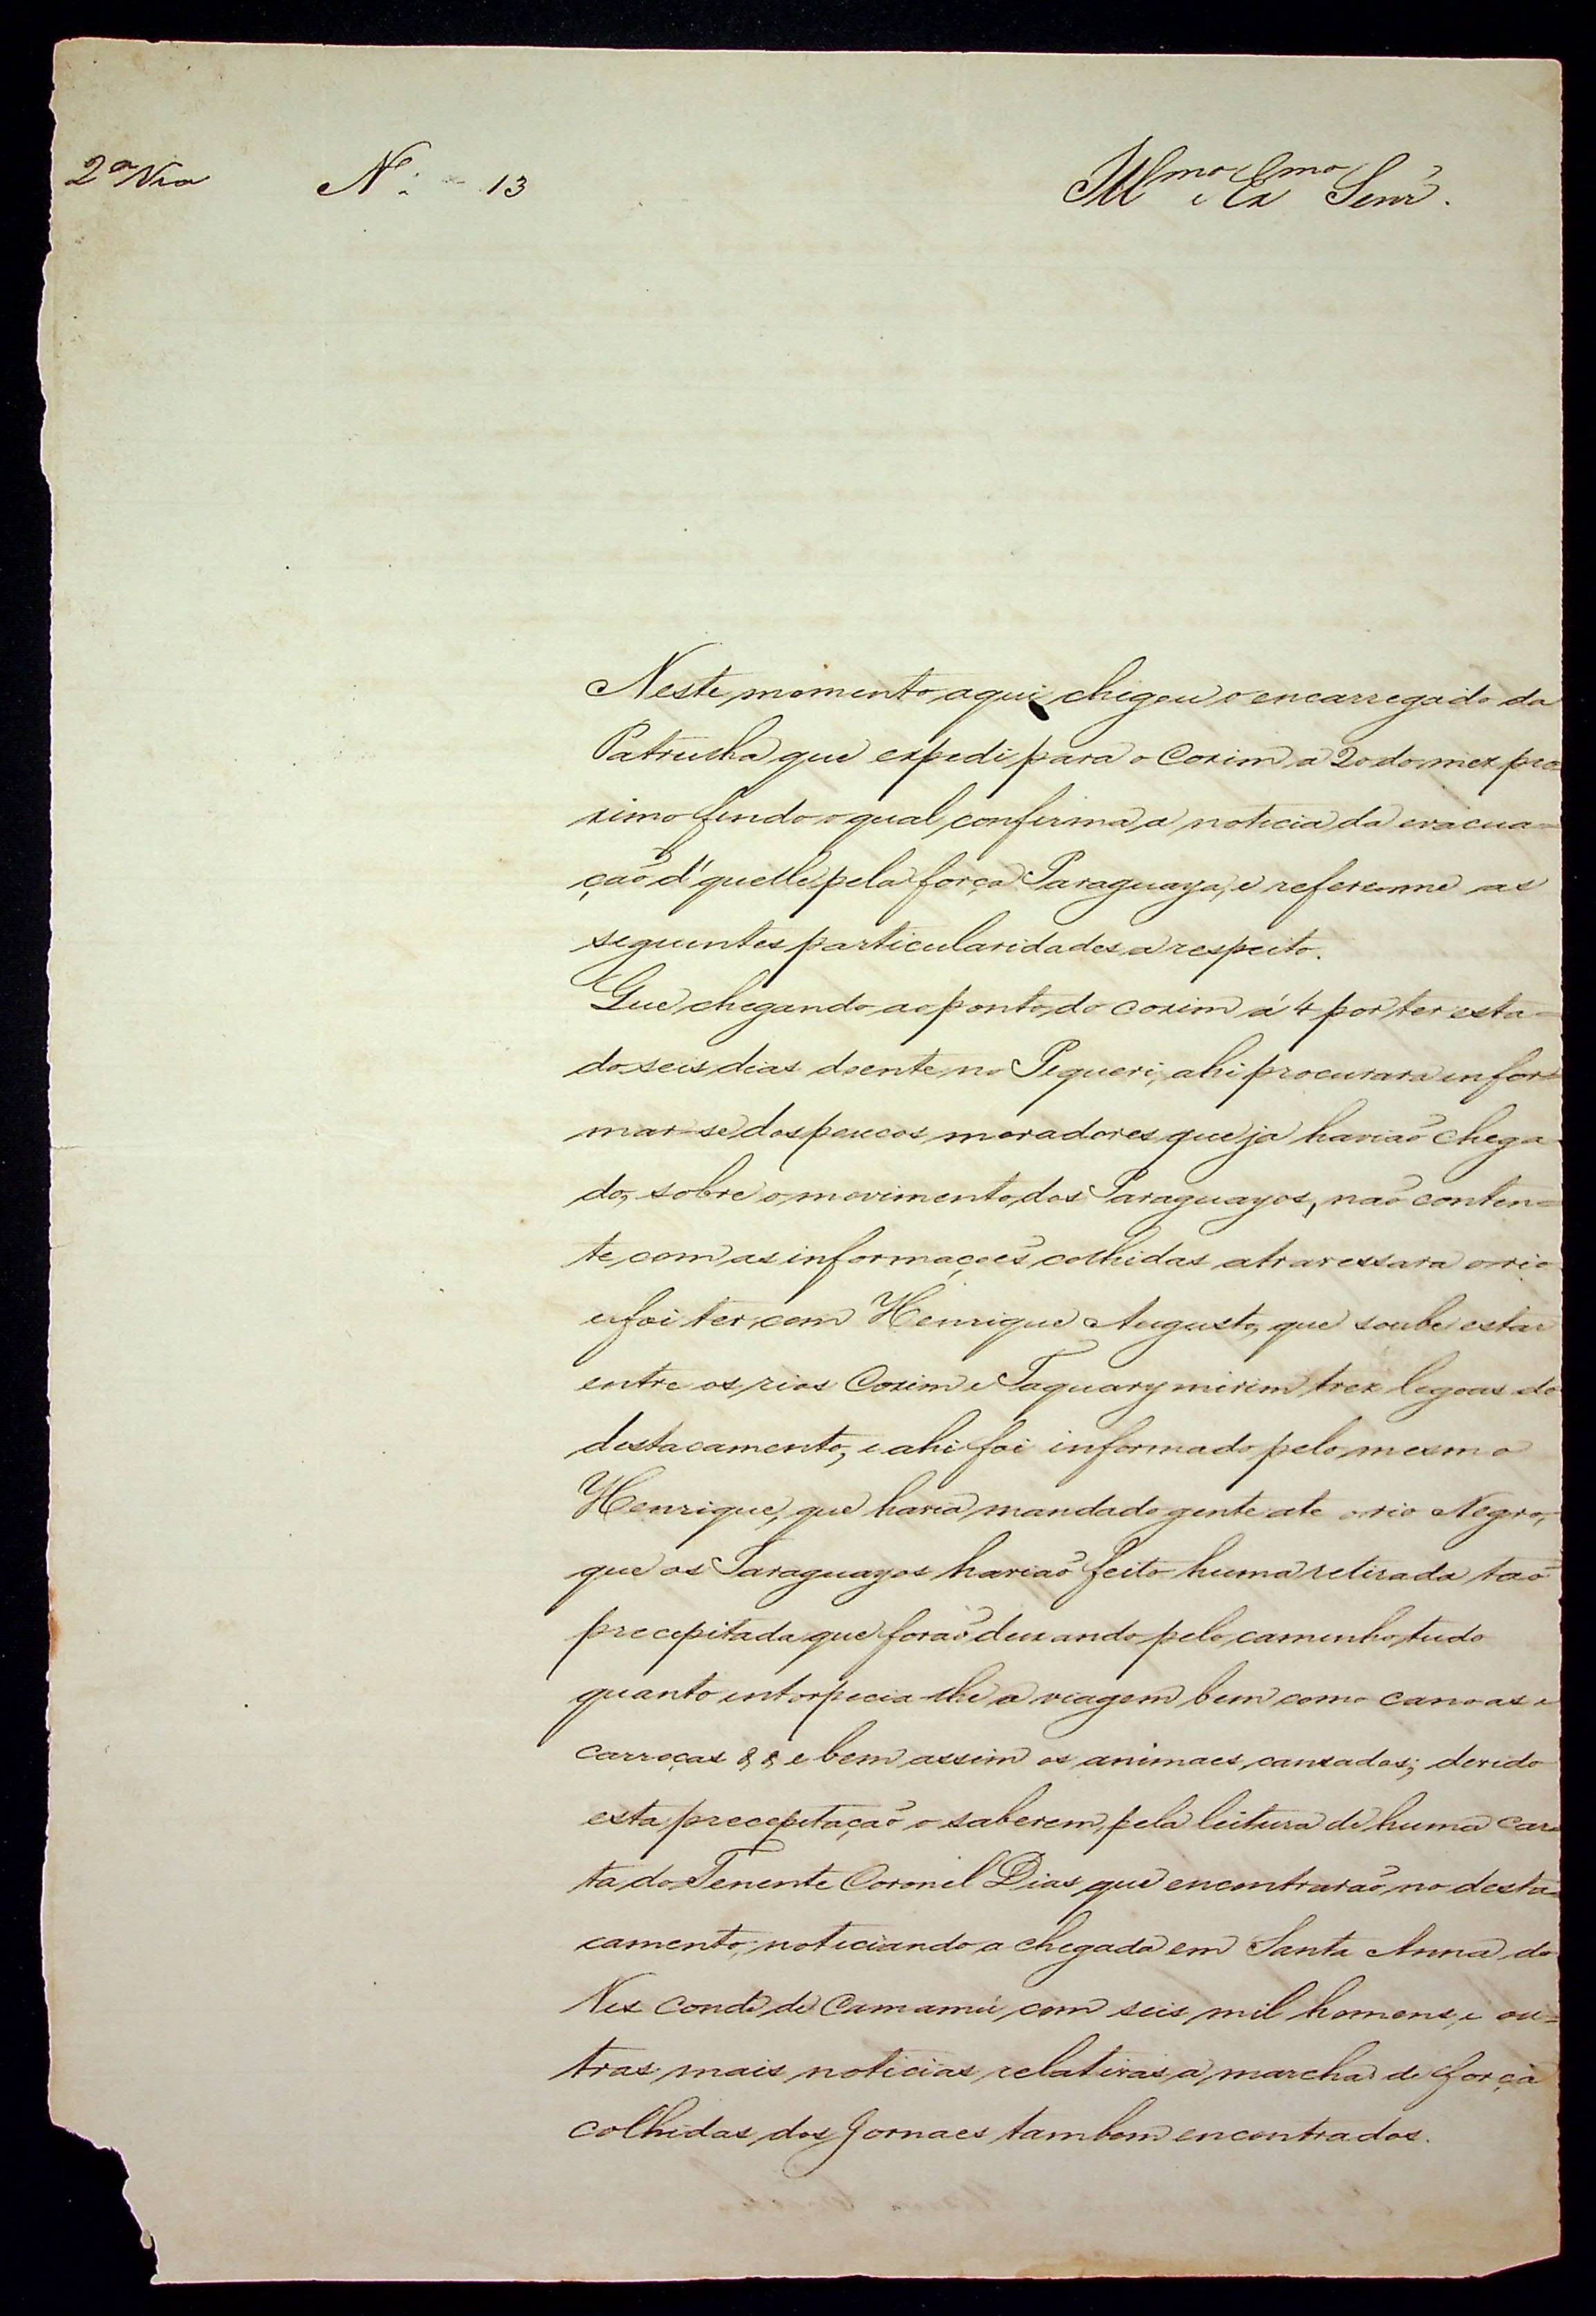 2ª Via Nº 13 Illmo e Exmo Senr.
Neste momento aqui chigou o encarregado da
Patrulha que expedi para o Coxim a 20 do mez pro=
ximo findo o qual confirma a noticia da evacua=
ção d'quelle pela força Paraguaya, e refere-me as
seguintes particularidades a respeito.
Que chegando ao ponto do coxim á 4 por ter esta=
do seis dias doente no Piqueri, ahi procurara infor=
mar-se dos poucos moradores que ja havião chega
do, sobre o movimento dos Paraguayos, não conten=
te com as informações colhidas atravessara o rio
e foi ter com Henrique Augusto, que soube estar
entre os rios Coxim e Taquary mirim trez legoas do
destacamento, e ahi foi informado pelo mesmo
Henrique, que havia mandado gente ate o rio Negro,
que os Paraguayos havião feito huma retirada tão
precepitada que forão deixando pelo caminho tudo
quanto entorpecia-lhe a viagem bem como canoas e
carroças & & e bem assim os animaes cansados; devido
esta precepitação o saberem, pela leitura de huma car=
ta do Tenente Coronel Dias que encontrarão no desta=
camento, noticiando a chegada em Santa Anna do
Vis conde de Camamú com seis mil homens, e ou=
tras mais noticias relativas a marcha de força
colhidas dos Jornaes tambem encontrados.